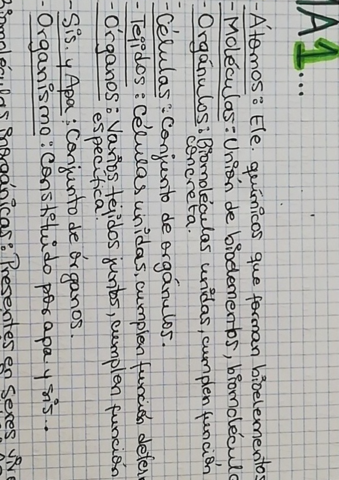 A 1...
- Átomos: Ele. químicos que forman bioelementos
- Moléculas: Unión de bioelementos, biomolécula
- Orgánulos: Biomoléculas unidas, cumplen función
concreta.
- Células: Conjunto de orgánulos.
- Tejidos: Células unidas, cumplen función deter
- Órganos: Varios tejidos juntos, cumplen función
específica.
- Sis. y Apa: Conjunto de órganos.
- Organismo: Constituido por apa y sis...
Biomoléculas inorgánicas: Presentes en seres viv